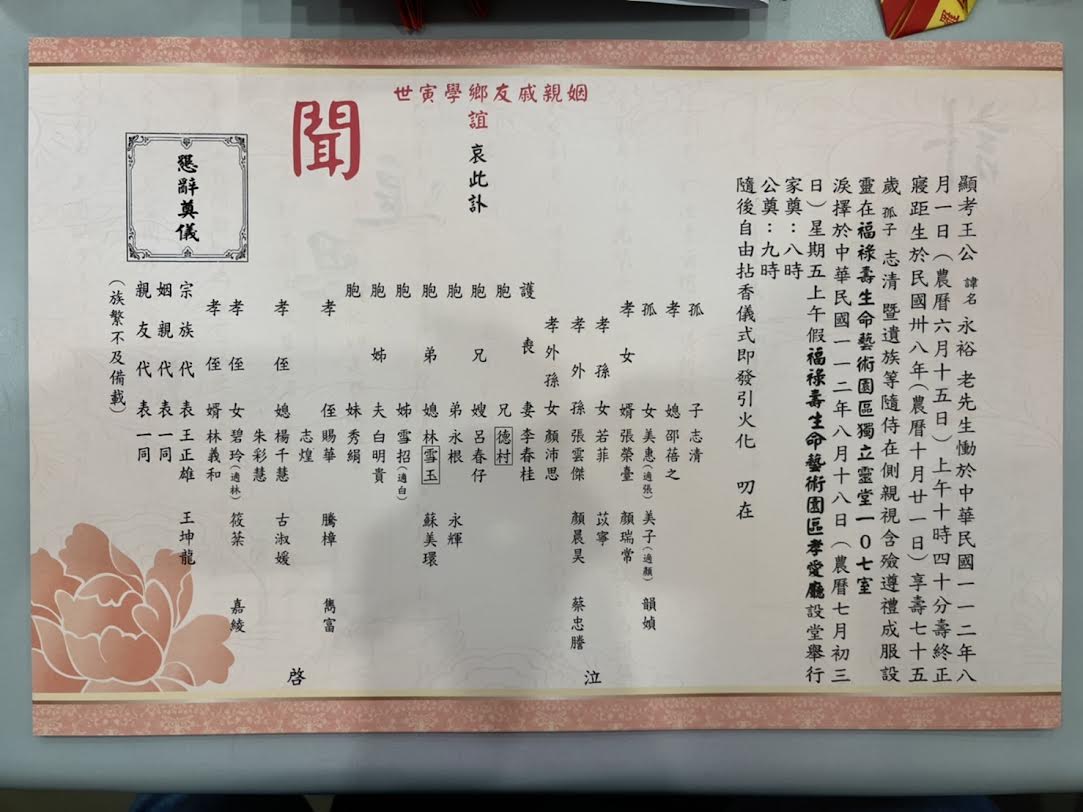 顯考王公 諱名 永裕 老先生慟於中華民國一一二年八
月一日（農曆六月十五日）上午十時四十分壽終正
寢距生於民國卅八年（農曆十月廿一日）享壽七十五
歲 孤子 志清 暨遺族等隨侍在側親視含殮遵禮成服設
靈在福祿壽生命藝術園區獨立靈堂一0七室
淚擇於中華民國一一二年八月十八日（農曆七月初三
日）星期五上午假福祿壽生命藝術園區孝愛廳設堂舉行
家奠：八時
公奠：九時
隨後自由拈香儀式即發引火化 叨在
姻親戚友鄉學寅世
誼 哀此訃
聞
孤子 志清
孝媳 邵蓓之
孤女 美惠（適張） 美子（適顏） 韻媜
孝女婿 張榮臺 顏瑞常
孝孫女 若菲 苡寧
孝外孫 張雲傑 顏晨昊 蔡忠謄
孝外孫女 顏沛思
泣
護喪妻 李春桂
胞兄 德村
胞兄嫂 呂春仔
胞弟 永根 永輝
胞弟媳 林雪玉 蘇美環
胞姊 雪招（適白）
胞姊夫 白明貴
胞妹 秀絹
孝侄 賜華 騰樟 雋富
志煌
孝侄媳 楊千慧 古淑媛
朱彩慧
孝侄女 碧玲（適林） 筱棻 嘉綾
孝侄婿 林義和
宗族代表 王正雄 王坤龍
姻親代表一同
親友代表一同
（族繁不及備載）
啓
懇辭奠儀